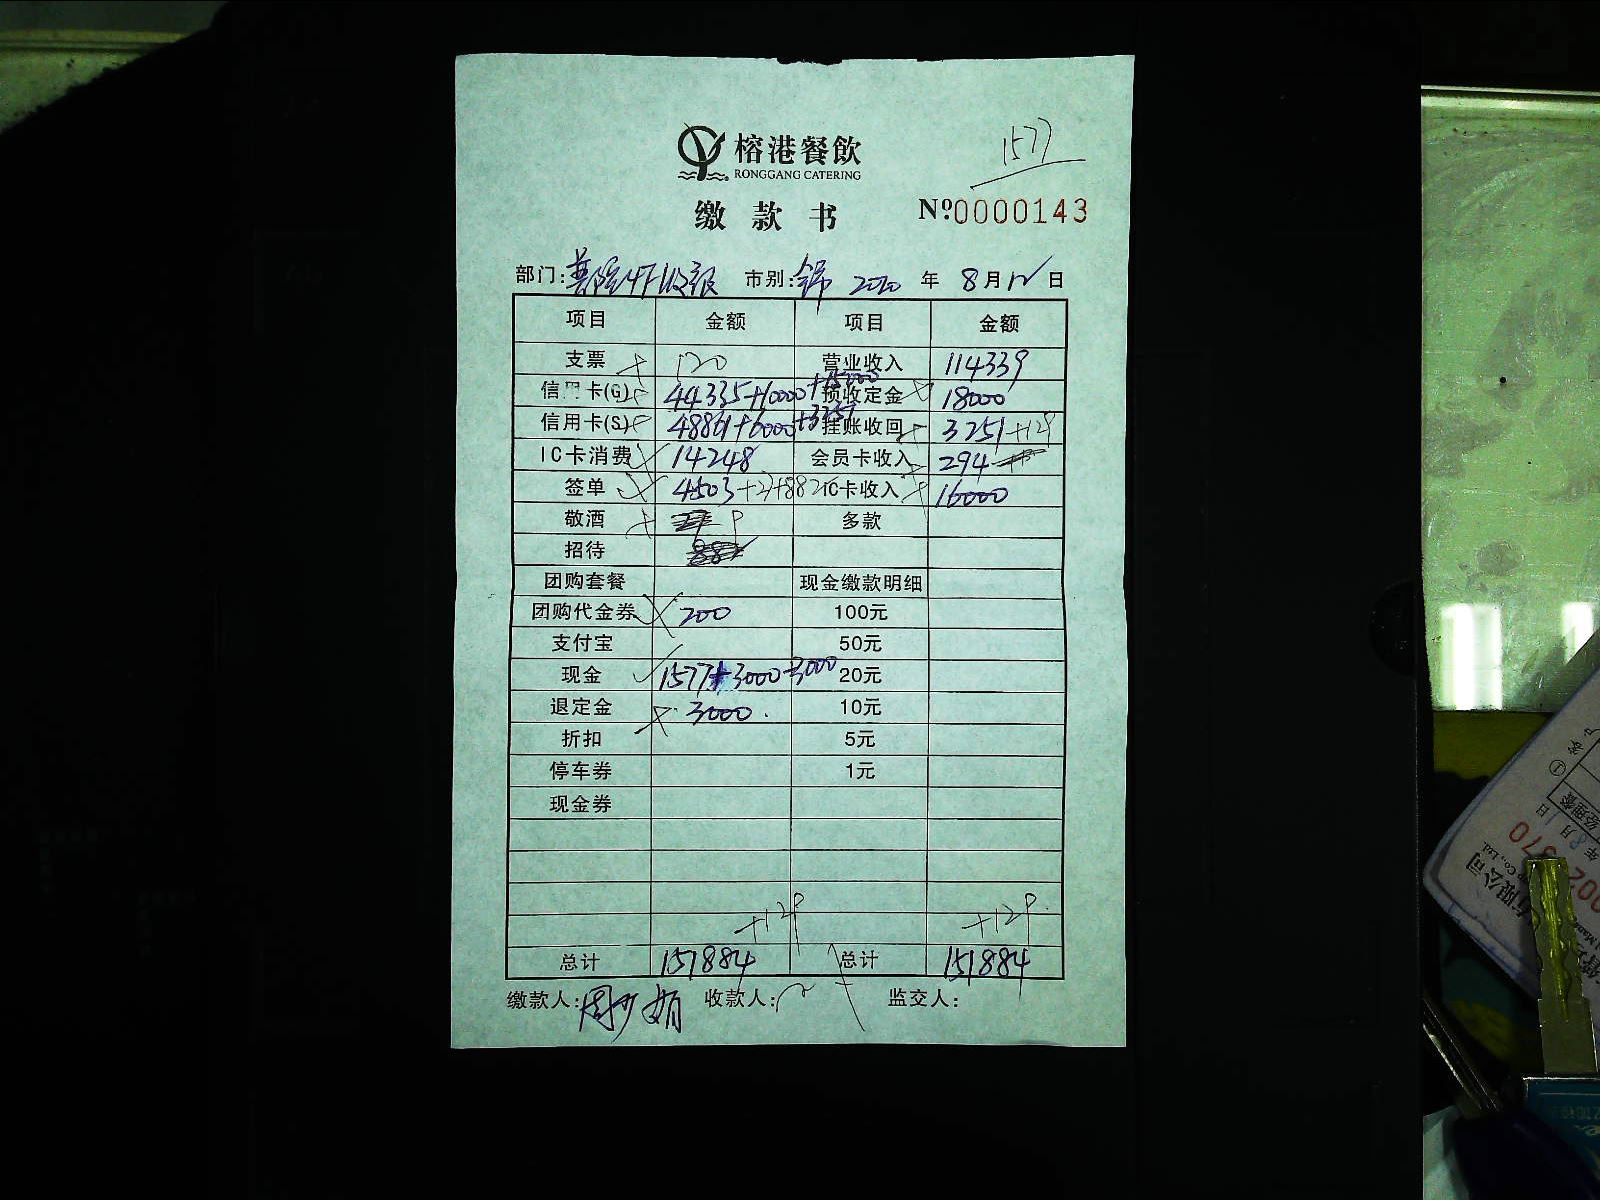 1577
榕港餐飲
RONGGANG CATERING
缴款书 Nº0000143
部门: 市别: 2020 年 8月12日
项目 金额 项目 金额
支票 120 营业收入 114339
信用卡(G) 44335+10000+15000 预收定金 18000
信用卡(S) 48861+6000+3257 挂账收回 3251+129
IC卡消费 14248 会员卡收入 294
签单 4503 IC卡收入 16000
敬酒 多款
招待
团购套餐 现金缴款明细
团购代金券 200 100元
支付宝 50元
现金 1577+3000-3000 20元
退定金 3000. 10元
折扣 5元
停车券 1元
现金券
+129 +129
总计 151884 总计 151884
缴款人: 收款人: 监交人:
有限公司
Co., Ltd.
年8月1日